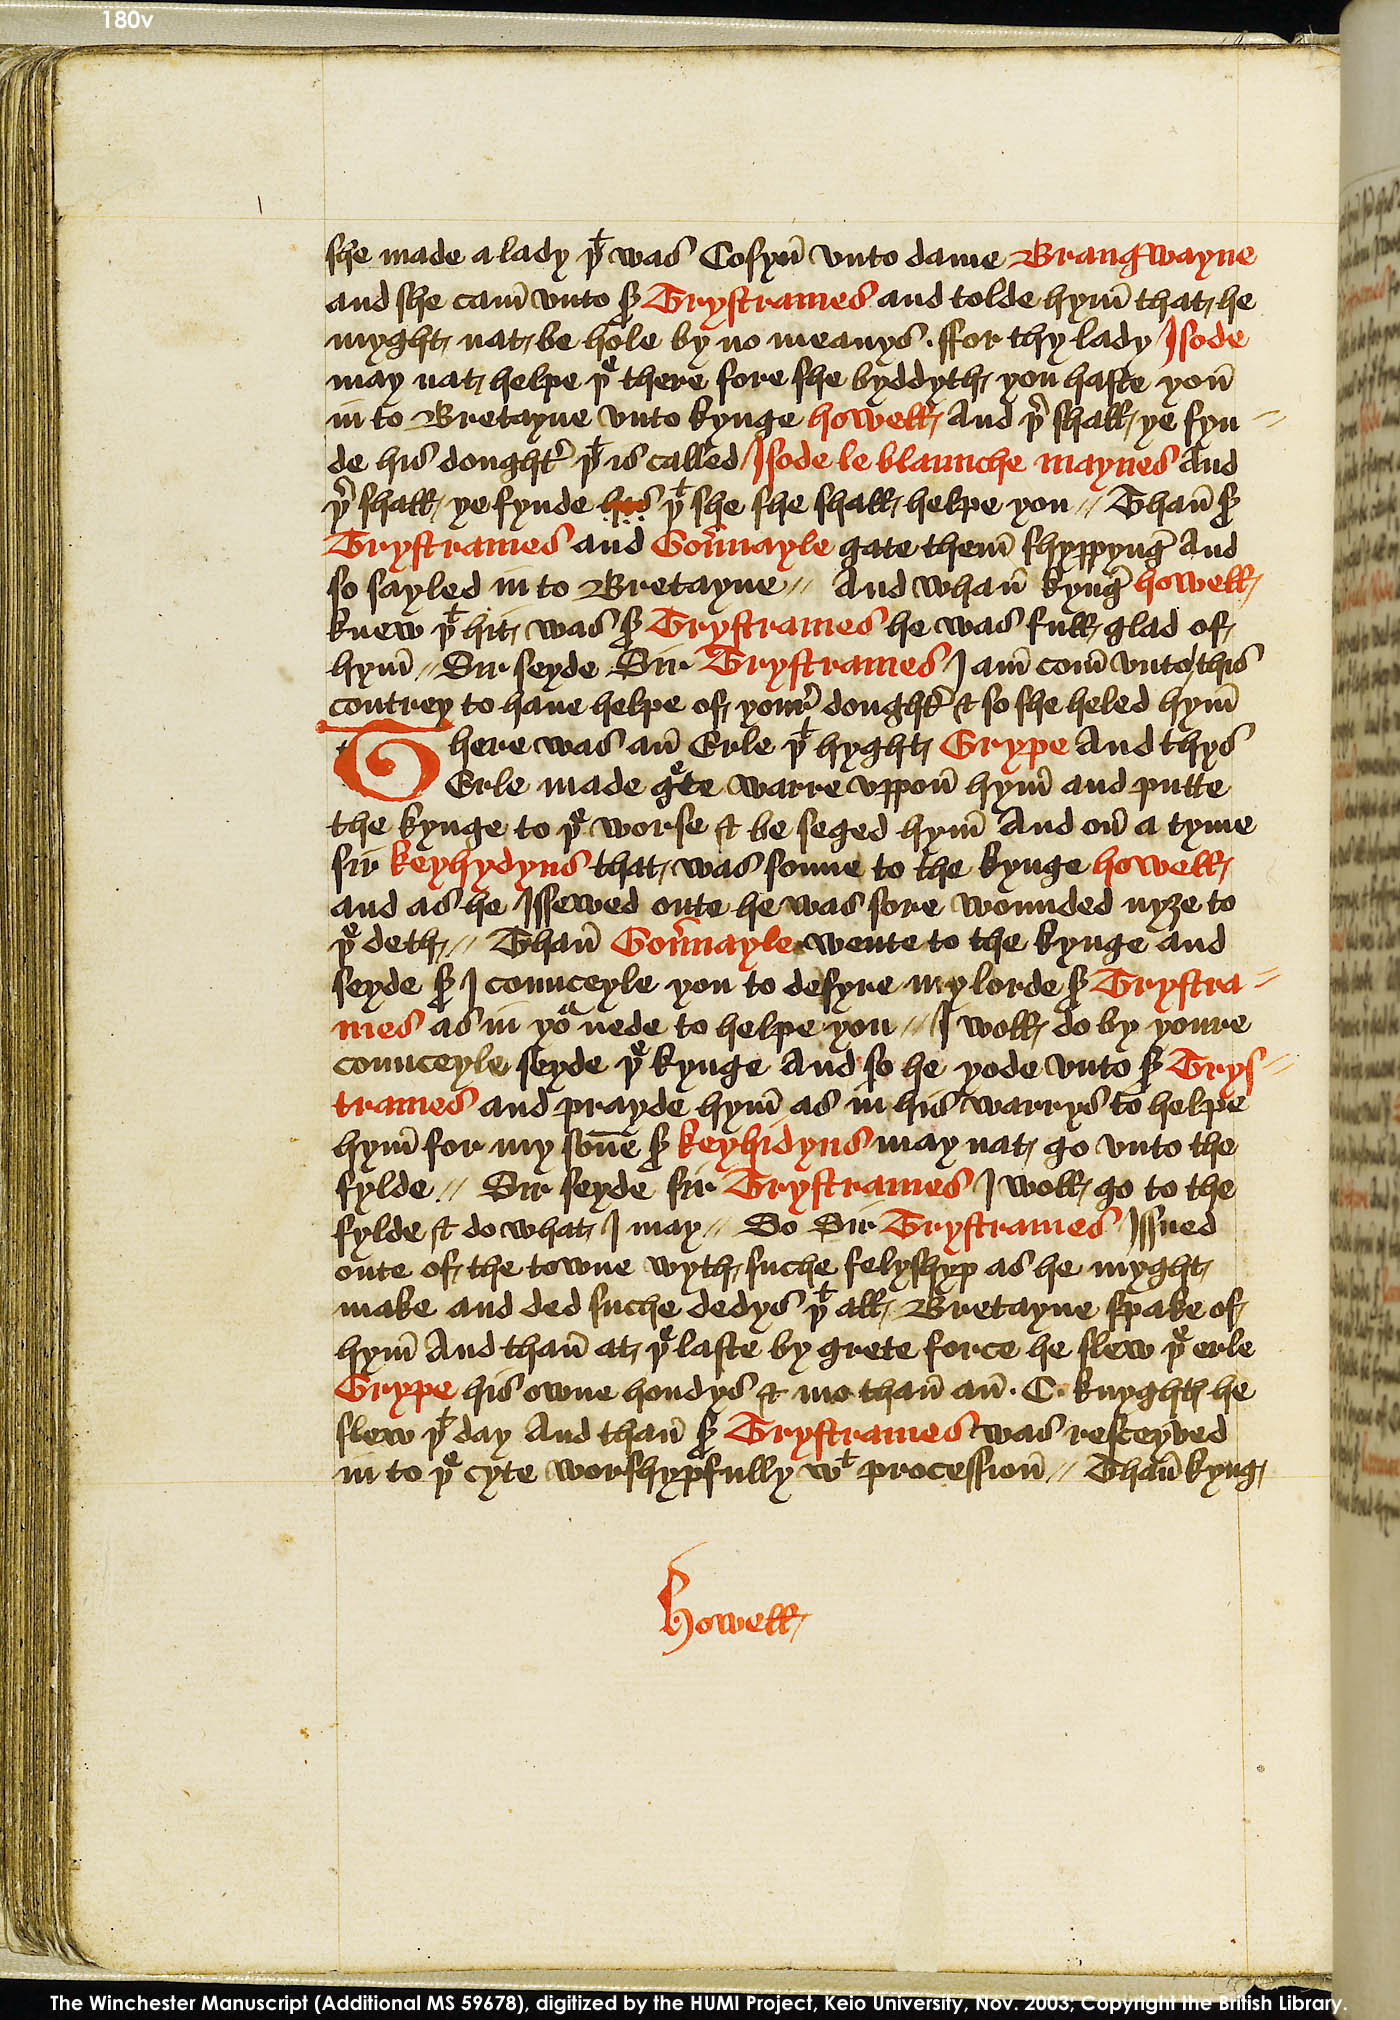 180v
she made a lady þᵗ was Cosyn̄ vnto dame Brangwayne
and she cam̄ vnto sͬ Trystrames and tolde hym̄ that he
myght nat be hole by no meanys . ffor thy lady Isode
may nat helpe þᵉ there fore she byddyth you haste you
in to Bretayne vnto kynge howell And þʳ shall ye fyn=
de his doughtʳ þᵗ is called Isode le blaunche maynes And
þʳ shall ye fynde hys þᵗ she she shall helpe you // Than̄ sͬ
Trystrames and Gouʳnayle gate them̄ shyppyng And
so sayled in to Bretayne // And whan̄ kyng howell
knew þᵗ hit was sͬ Trystrames he was full glad of
hym̄ // Sir seyde Sir Trystrames I am̄ com̄ vnto this
contrey to haue helpe of youʳ doughtʳ & so she heled hym̄
There was an̄ Erle þᵗ hyght Grype And thys
Erle made gᵉte warre vppon̄ hym̄ and putte
the kynge to þᵉ worse & be seged hym̄ And on̄ a tyme
sir keyhydyns that was sonne to the kynge howell
and as he Issewed oute he was sore wounded nyȝe to
þᵉ deth // Than̄ Gouʳnayle wente to the kynge and
seyde sͬ I counceyle you to desyre my lorde sͬ Trystra=
mes as in yoʳ nede to helpe you // I woll do by youre
counceyle seyde þᵉ kynge And so he yode vnto sͬ Trys=
trames and prayde hym̄ as in his warrys to helpe
hym̄ for my son̄e sͬ keyhidyns may nat go vnto the
fylde // Sir seyde sir Trystrames I woll go to the
fylde & do what I may // So Sir Trystrames Issued
oute of the towne wyth suche felyshyp as he myght
make and ded suche dedys þᵗ all Bretayne spake of
hym̄ And than̄ at þᵉ laste by grete force he slew þᵉ erle
Grype his owne hondys & mo than̄ an̄ . C . knyghtꝭ he
slew þᵗ day And than̄ sͬ Trystrames was resceyved
in to þᵉ cyte worshypfully wᵗ procession̄ // Than̄ kyng
howell
The Winchester Manuscript (Additional MS 59678), digitized by the HUMI Project, Keio University, Nov. 2003; Copyright the British Library.